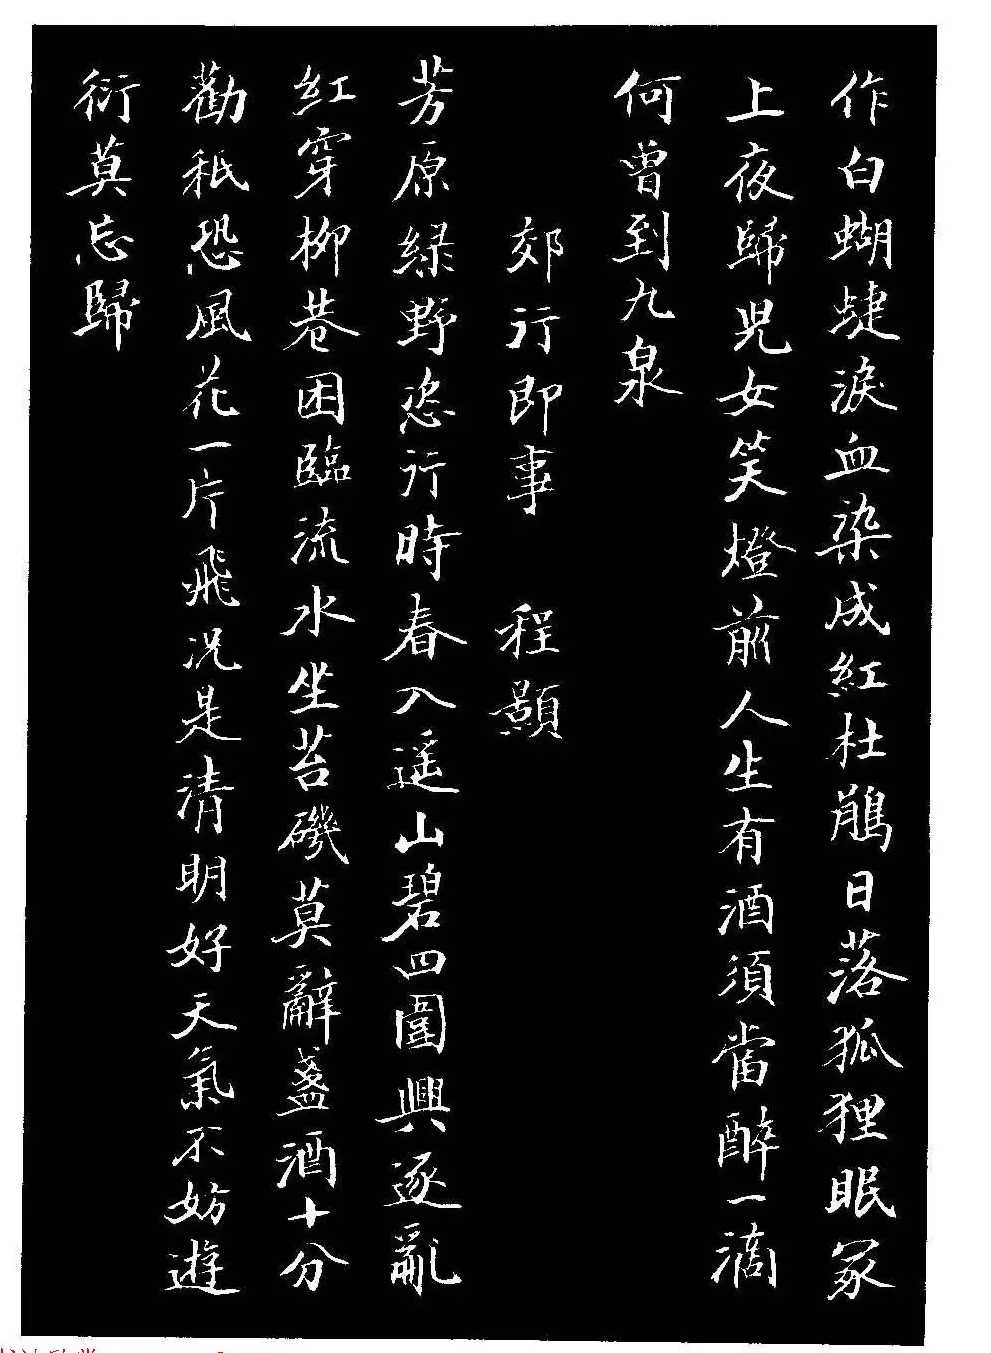 作白蝴蜨淚血染成紅杜鵑日落狐狸眠冢
上夜歸児女笑燈前人生有酒須當醉一滴
何曾到九泉
郊行即事 程顥
芳原緑野恣行時春入遥山碧四圍興逐亂
紅穿柳巷困臨流水坐苔磯莫辭盞酒十分
勸秖恐風花一片飛況是清明好天氣不妨遊
衍莫忘歸